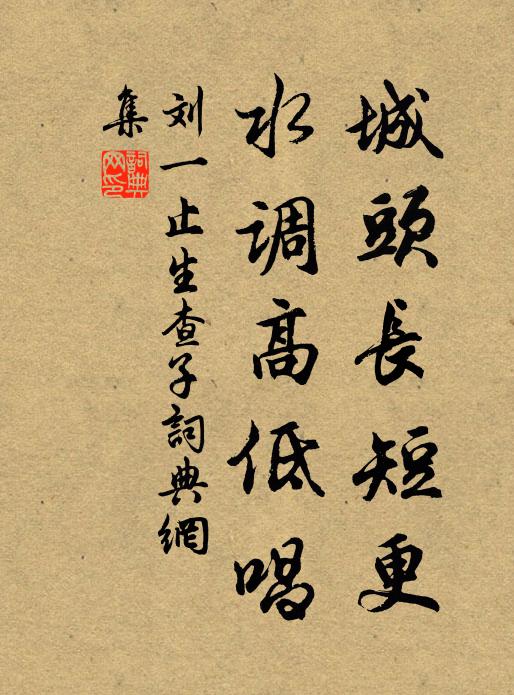 城頭長短更
水調高低唱
刘一止生查子詞典網
集
詞典
网印